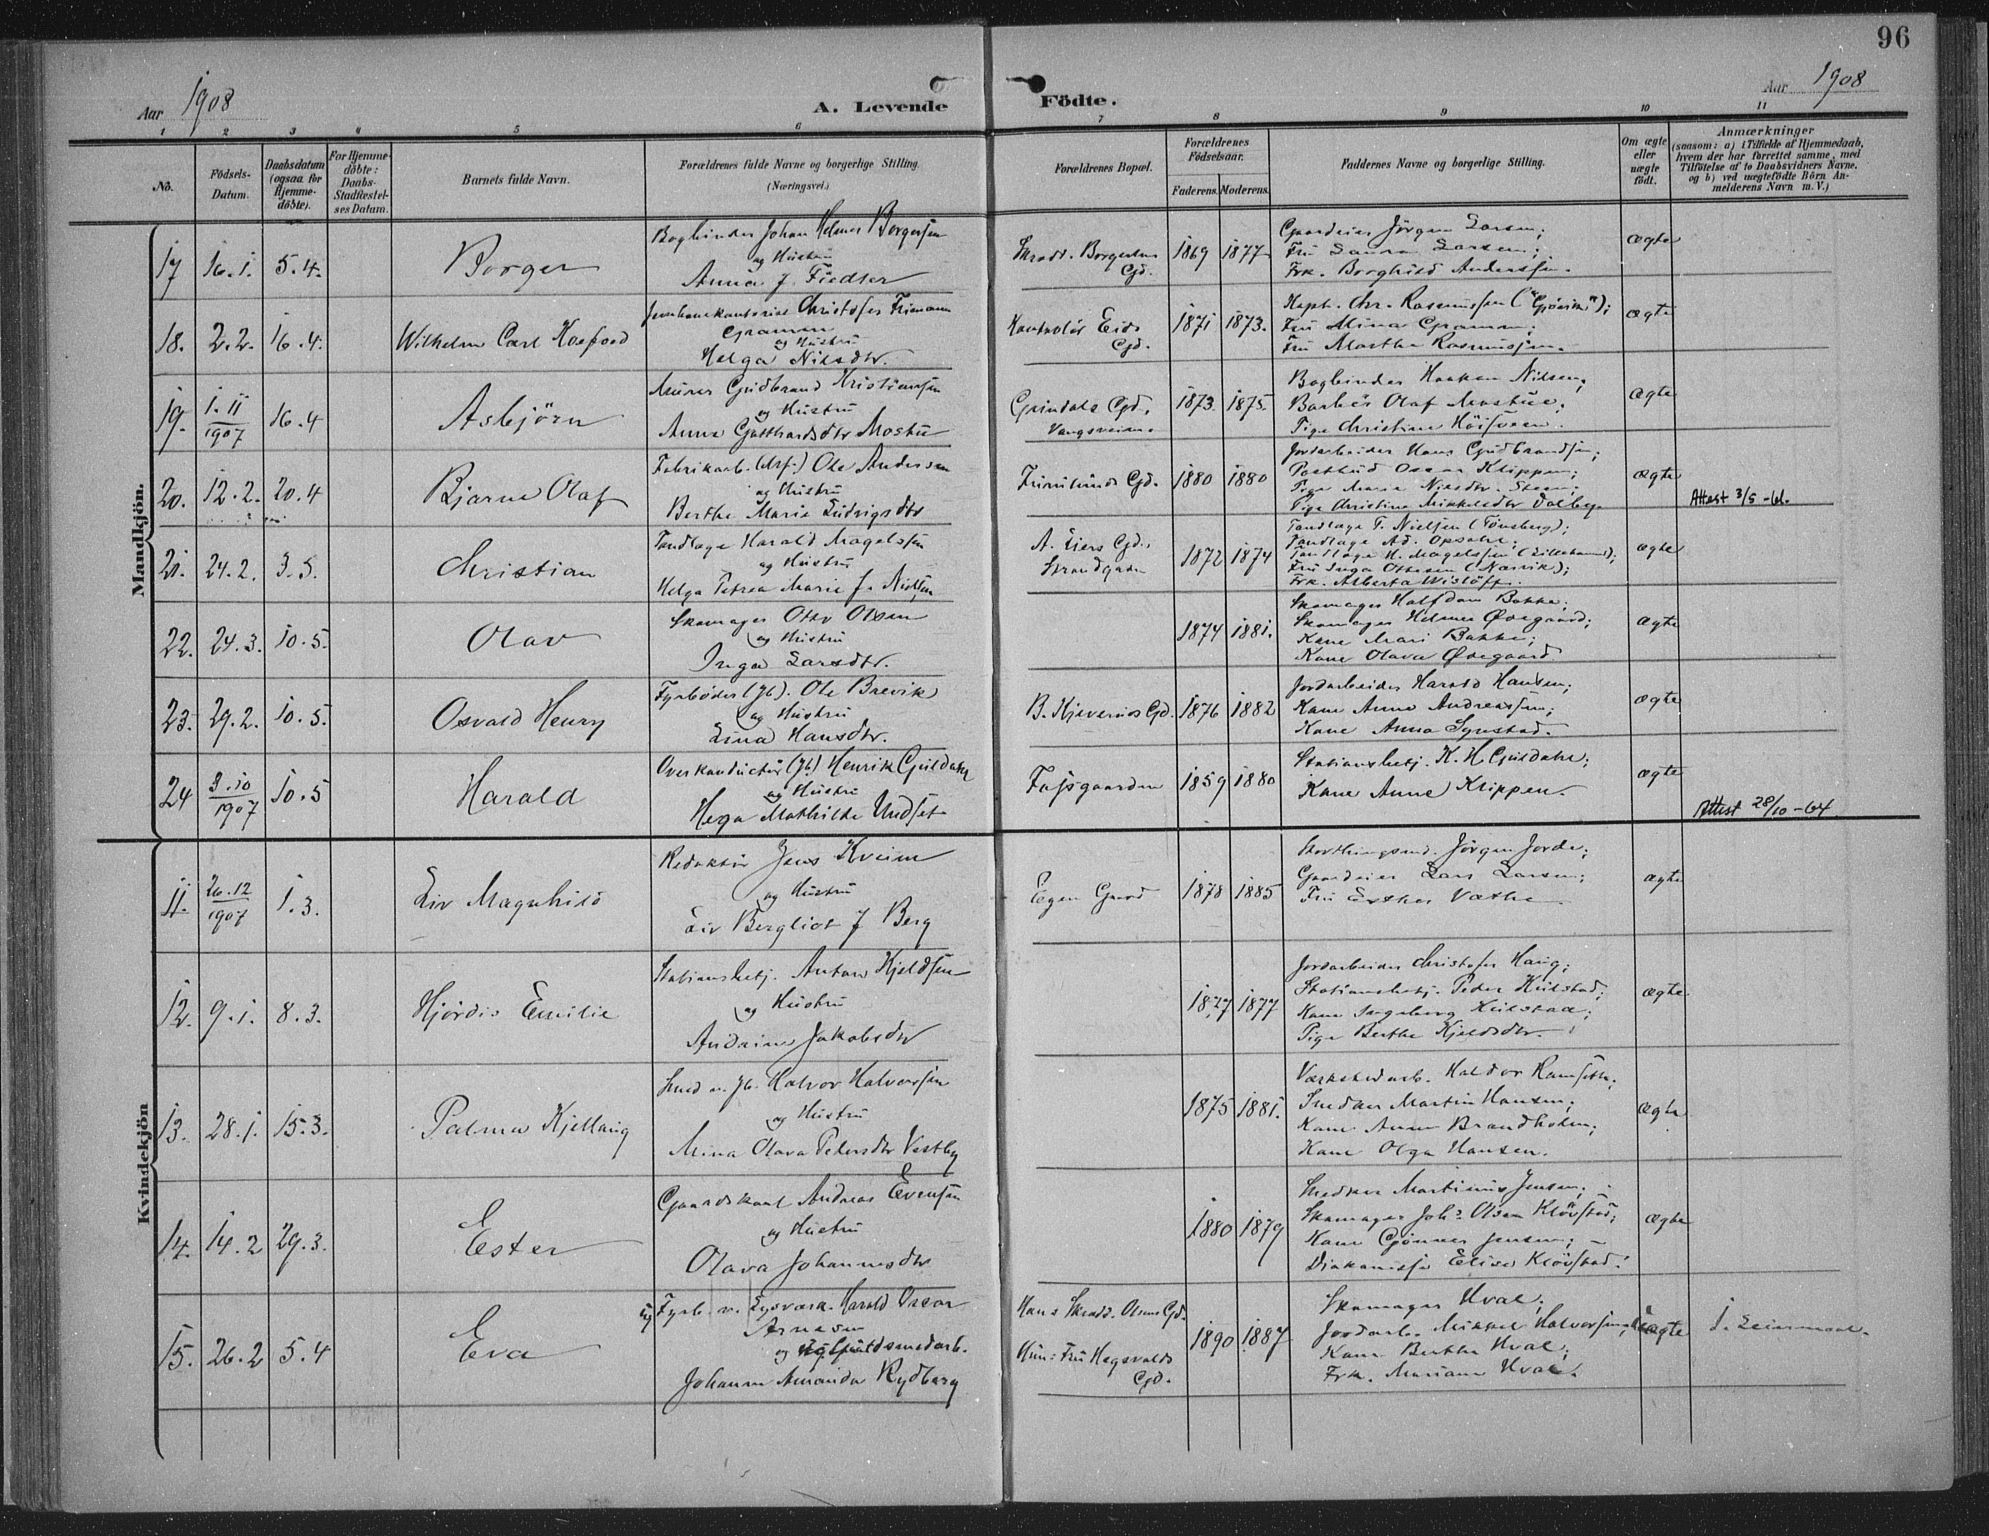 96
Aar 1908
A. Levende
Födte.
Aar 1908
1 2 3 4 5 6 7 8 9 10 11
No.
Födsels-Datum.
Daabsdatum (ogsaa for Hjemme-döbte).
For Hjemme-döbte: Daabs-Stadfæstel-ses Datum.
Barnets fulde Navn.
Forældrenes fulde Navne og borgerlige Stilling.
(Næringsvei.)
Forældrenes Bopæl.
Forældrenes Födselsaar.
Faderens. Moderens.
Faddernes Navne og borgerlige Stilling.
Om ægte eller uægte födt.
Anmærkninger
(saasom: a) i Tilfælde af Hjemmedaab, hvem der har forrettet samme, med Tilföielse af to Daabsvidners Navne, og b) ved uægtefödte Börn An-melderens Navn m. V.)
Mandkjön.
17 16.1. 5.4. Borger
Bogbinder Johan Helmer Borgersen
og Hustru
Anna J. Fiedler
Skrædd. Borgersens Gd.
1869 1877
Gaardeier Jörgen Larsen;
Fru Laura Larsen;
Frk. Borghild Anderssen.
ægte
18. 2.2. 16.4. Wilhelm Carl Koefoed
Jernbanekontorist Christofer Frimann
Gramm
og Hustru
Helga Nilsdtr.
Kontrolör Eids
Gd.
1871 1873.
Kapt. Chr. Rasmussen ("Gjövik");
Fru Mina Gramm;
Fru Marthe Rasmussen.
ægte
19. 1.11 1907 16.4 Asbjörn
Murer Gudbrand Kristiansen
og Hustru
Anna Gotthardsdtr Mostue
Grindals Gd.
Vangsveien.
1873 1875.
Bogbinder Haakon Nilsen;
Barbér Olaf Mostue;
Pige Christine Höisveen.
ægte
20. 12.2. 20.4 Bjarne Olaf
Fabrikarb. Ole Andersen
og Hustru
Berthe Marie Ludvigsdtr
Gd. 1880 1880
Jordarbeider Hans Gudbrandsen;
Postbud Oscar Klippen;
Pige Maria Nilsdtr. Steen;
Pige Christine Mikkelsdtr Dalby.
ægte
Attest 3/5 -61.
21. 24.2. 3.5. Christian
Tandlæge Harald Magelssen
og Hustru
Helga Petrea Marie f. Nielsen
A. Liers Gd.,
Strandgaden
1872 1874
Tandlæge T. Nielsen (Tönsberg);
Tandlæge Ad. Opsahl;
Tandlæge H. Magelssen (Lillehammer);
Fru Inga Ottesen (Narvik);
Frk. Alberta Wislöff.
ægte
22. 24.3. 10.5. Olav
Skomager Otto Olsen
og Hustru
Inga Larsdtr.
1874 1881.
Skomager Halfdan Bakke;
Skomager Helmer Øvegaard;
Kone Mari Bakke;
Kone Olava Øvegaard
ægte
23. 29.2. 10.5. Osvald Henry
Fyrböder (Jb). Ole Brevik
og Hustru
Lina Hansdtr.
B. Kjeverud Gd. 1876 1882
Jordarbeider Harald Hansen;
Kone Anne Andreassen;
Kone Anna Synstad.
ægte
24 3.10 1907 10.5 Harald
Overkonduktör (Jb) Henrik Guldahl
og Hustru
Mathilde Undset
1859 1880
Stationsbetj. K. H. Guldahl;
Kone Anne Klippen.
ægte
Attest 28/10 -64.
Kvindekjön
11. 26.12 1907 1.3. Liv Magnhild
Redaktör Jens Kveim
og Hustru
Liv Bergliot f. Berg
Egen Gaard
1878 1885
Storthingsmd. Jörgen Jorde;
Gaardeier Lars Larsen;
Fru Esther Væthe
ægte
12. 9.1. 8.3. Hjördis Emilie
Stationsbetj. Anton Kjeldsen
og Hustru
Andrine Jakobsdtr
1877 1877
Jordarbeider Christofer Haug;
Stationsbetj. Peder Hulstad;
Kone Ingeborg Hulstad;
Pige Berthe Kjeldsdtr.
ægte
13. 28.1. 15.3. Palma Kjellaug
Smed v. Jb. Halvor Halvorsen
og Hustru
Mina Olava Pedersdtr Vestby
1875 1881.
Værkstedarb. Haldor Ramseth;
Snedker Martin Hansen;
Kone Anna Brandholm;
Kone Olga Hansen.
ægte
14. 14.2 29.3. Ester
Gaardskarl Andreas Evensen
og Hustru
Olava Johannesdtr
1880 1879
Snedker Martinius Jensen;
Skomager Johs Olsen Klövstad;
Kone Gjönner Jensen;
Diakonisse Elise Klövstad.
ægte
15. 26.2 5.4 Eva
ug Fyrb. v. Lysværk. Harald Oscar
Arnesen
og ug Guldsmedarb.
Johanne Amanda Rydberg
Hans: Skrædd. Olsens Gd.
Hun: Fru Hegsvolds
Gd.
1890 1887
Skomager Hval;
Jordarb. Mikkel Halvorsen;
Kone Berthe Hval;
Frk. Mariane Hval.
uægte
1. Leiermaal.